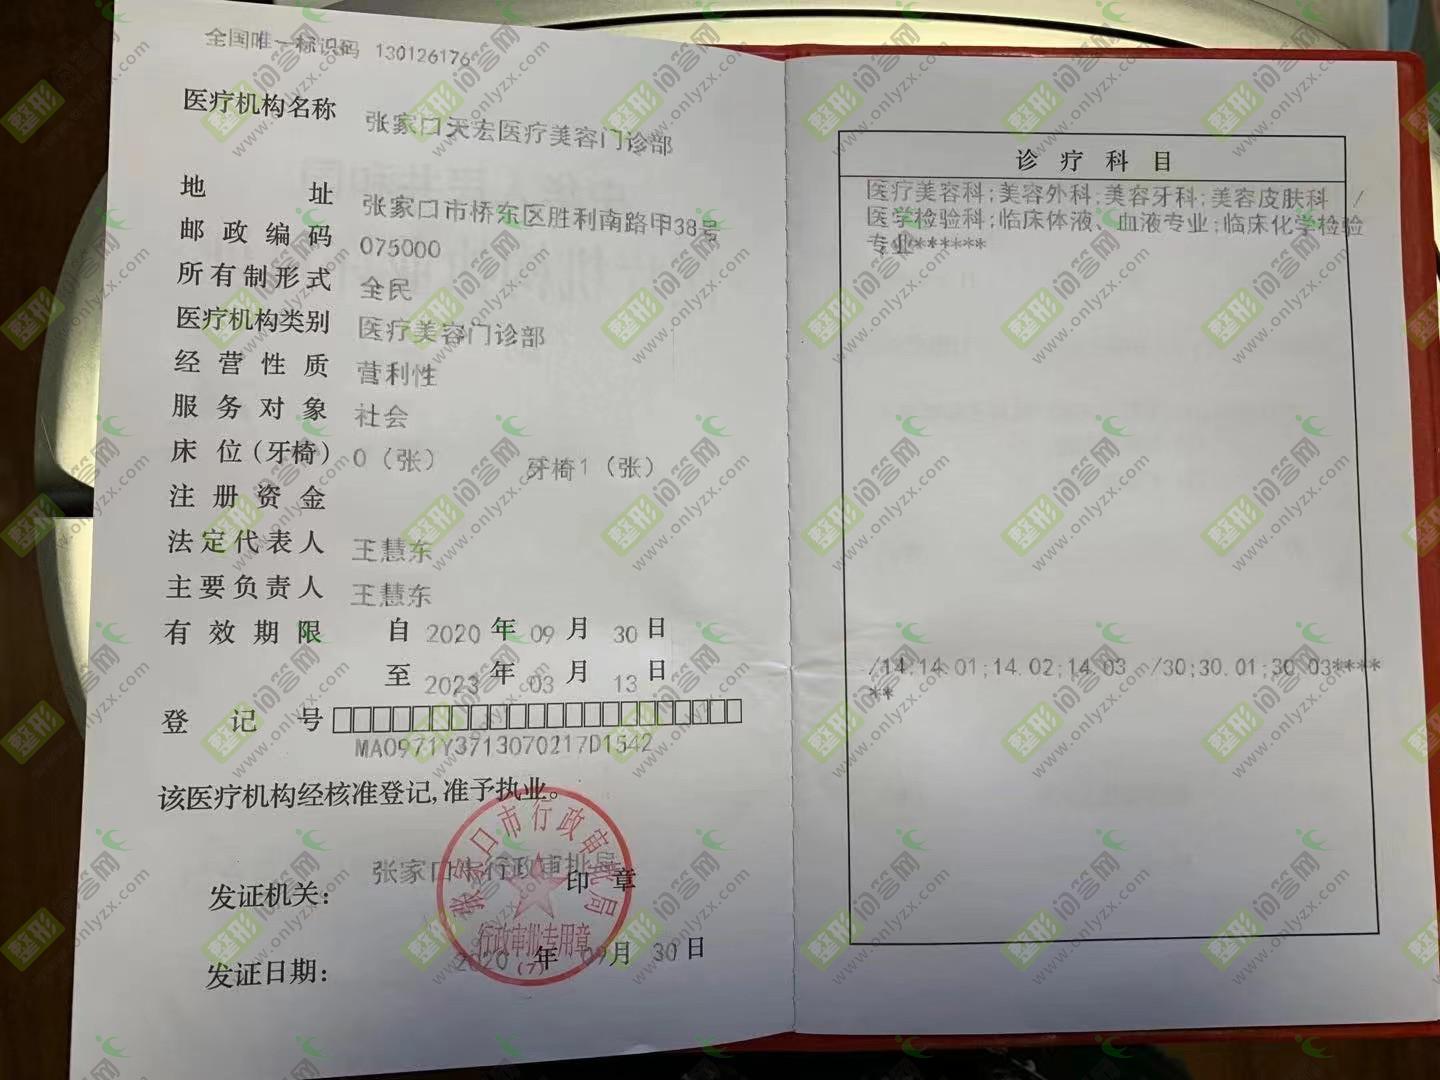 全国唯一标识码 130126176
医疗机构名称 张家口天宏医疗美容门诊部
地 址 张家口市桥东区胜利南路甲38号
邮政编码 075000
所有制形式 全民
医疗机构类别 医疗美容门诊部
经营性质 营利性
服务对象 社会
床位(牙椅) 0（张） 牙椅1（张）
注册资金
法定代表人 王慧东
主要负责人 王慧东
有效期限 自 2020 年 09 月 30 日
至 2023 年 03 月 13 日
登记号 □□□□□□□□□□□□□□□□□□□□□□
MA0971Y3713070217D1542
该医疗机构经核准登记,准予执业。
张家口市行政审批局
发证机关: 印 章
发证日期: 2020 年 09月 30 日
张家口市行政审批局
行政审批专用章
(7)
诊疗科目
医疗美容科;美容外科;美容牙科;美容皮肤科 /
医学检验科;临床体液、血液专业;临床化学检验
专业******
/14;14.01;14.02;14.03 /30;30.01;30.03****
**
整形问答网
www.onlyzx.com